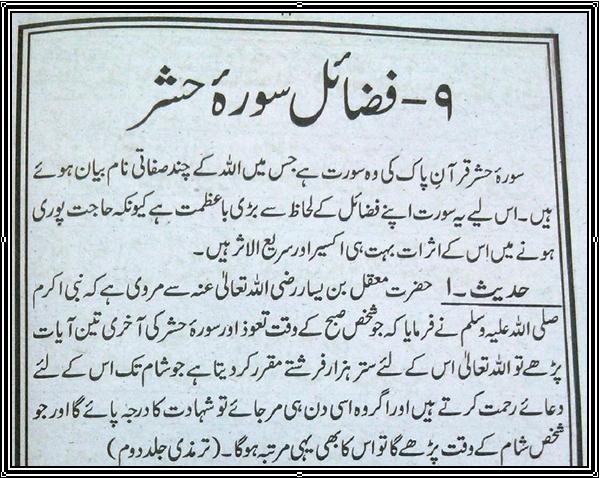 ۹ - فضائل سورۂ حشر
سورۂ حشر قرآن پاک کی وہ سورت ہے جس میں اللہ کے چند صفاتی نام بیان ہوئے
ہیں۔ اس لیے یہ سورت اپنے فضائل کے لحاظ سے بڑی باعظمت ہے کیونکہ حاجت پوری
ہونے میں اس کے اثرات بہت ہی اکسیر اور سریع الاثر ہیں۔
حدیث۔۱ حضرت معقل بن یسار رضی اللہ تعالیٰ عنہ سے مروی ہے کہ نبی اکرم
صلی اللہ علیہ وسلم نے فرمایا کہ جو شخص صبح کے وقت تعوذ اور سورۂ حشر کی آخری تین آیات
پڑھے تو اللہ تعالیٰ اس کے لئے ستر ہزار فرشتے مقرر کر دیتا ہے جو شام تک اس کے لئے
دعائے رحمت کرتے ہیں اور اگر وہ اسی دن ہی مر جائے تو شہادت کا درجہ پائے گا اور جو
شخص شام کے وقت پڑھے گا تو اس کا بھی یہی مرتبہ ہو گا۔ (ترمذی جلد دوم)